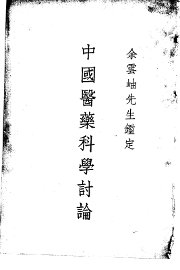 余雲岫先生鑑定
中國醫藥科學討論